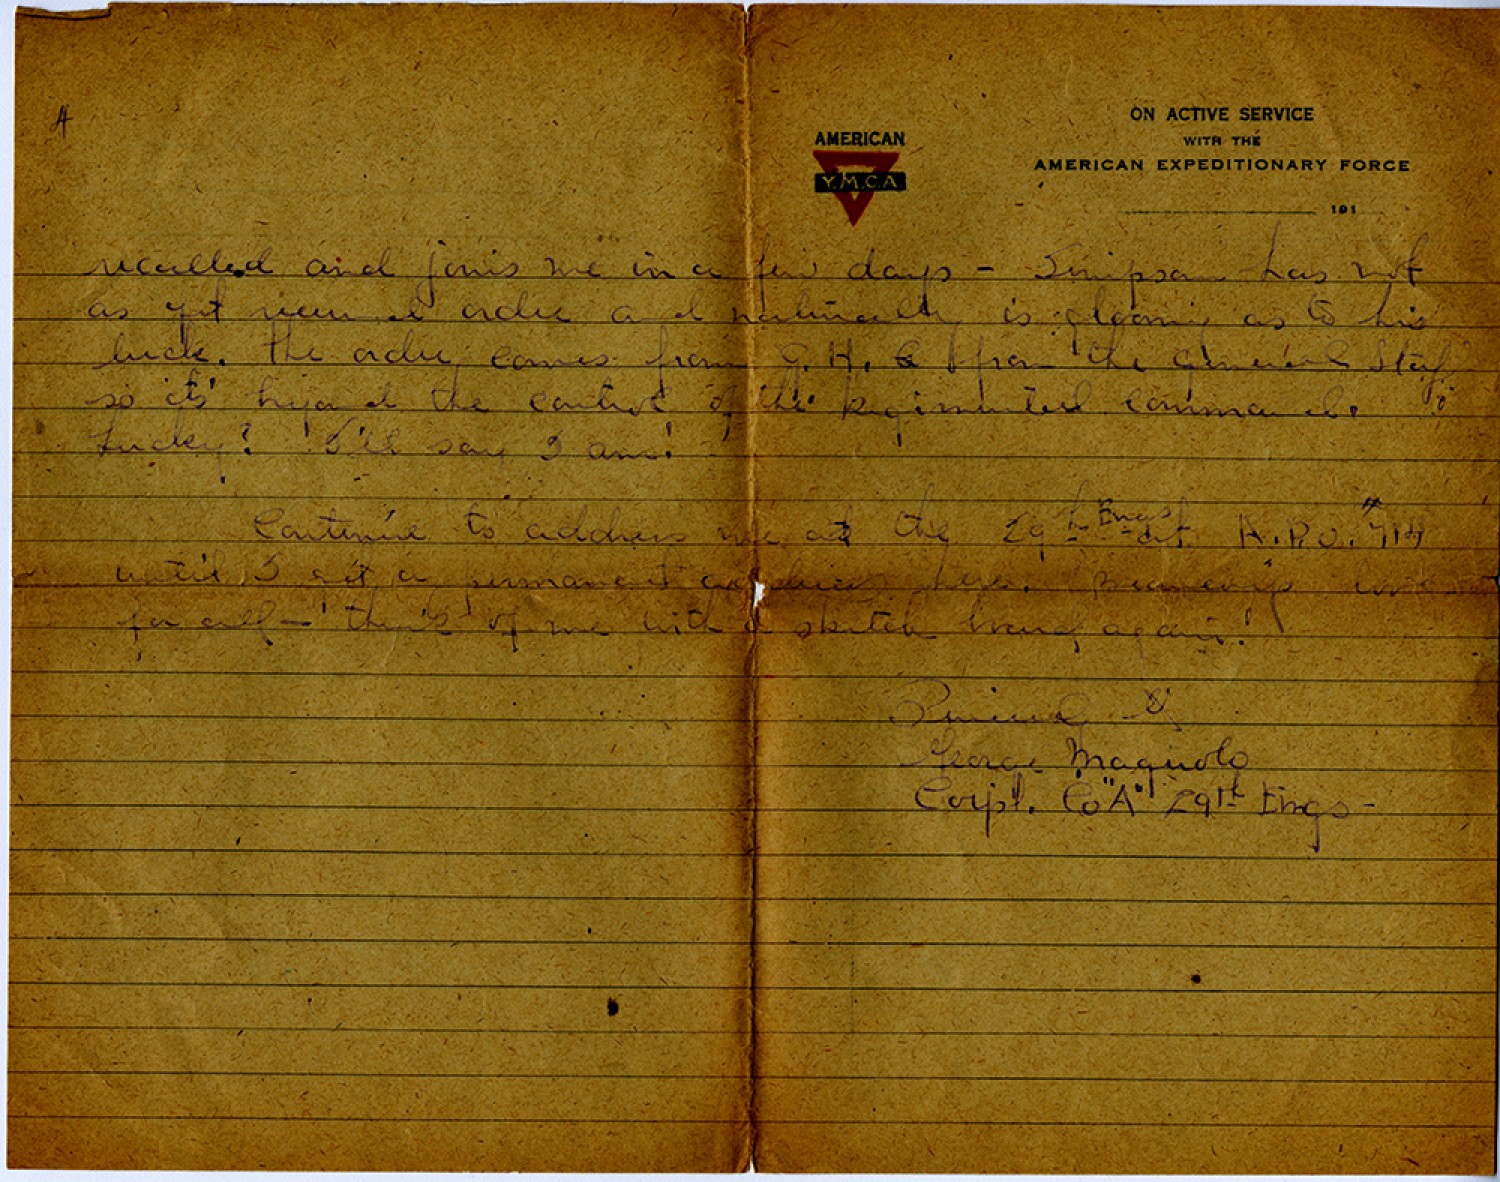 4
ON ACTIVE SERVICE
WITH THE
AMERICAN EXPEDITIONARY FORCE
AMERICAN
Y.M.C.A.
191
recalled and joins me in a few days – Simpson has not
as yet received order and naturally is gloomy as to his
luck. The order comes from G.H.Q from the General Staff
so its' beyond the control of the Regimental Command.
Lucky? I'll say I am!
Continue to address me at the 29th Engs at A.P.O. #714
until I get a permanent address here. love
for all – think of me with a sketch board again!
Sincerely
George Magnolo
Corpl. Co "A" 29th Engs –